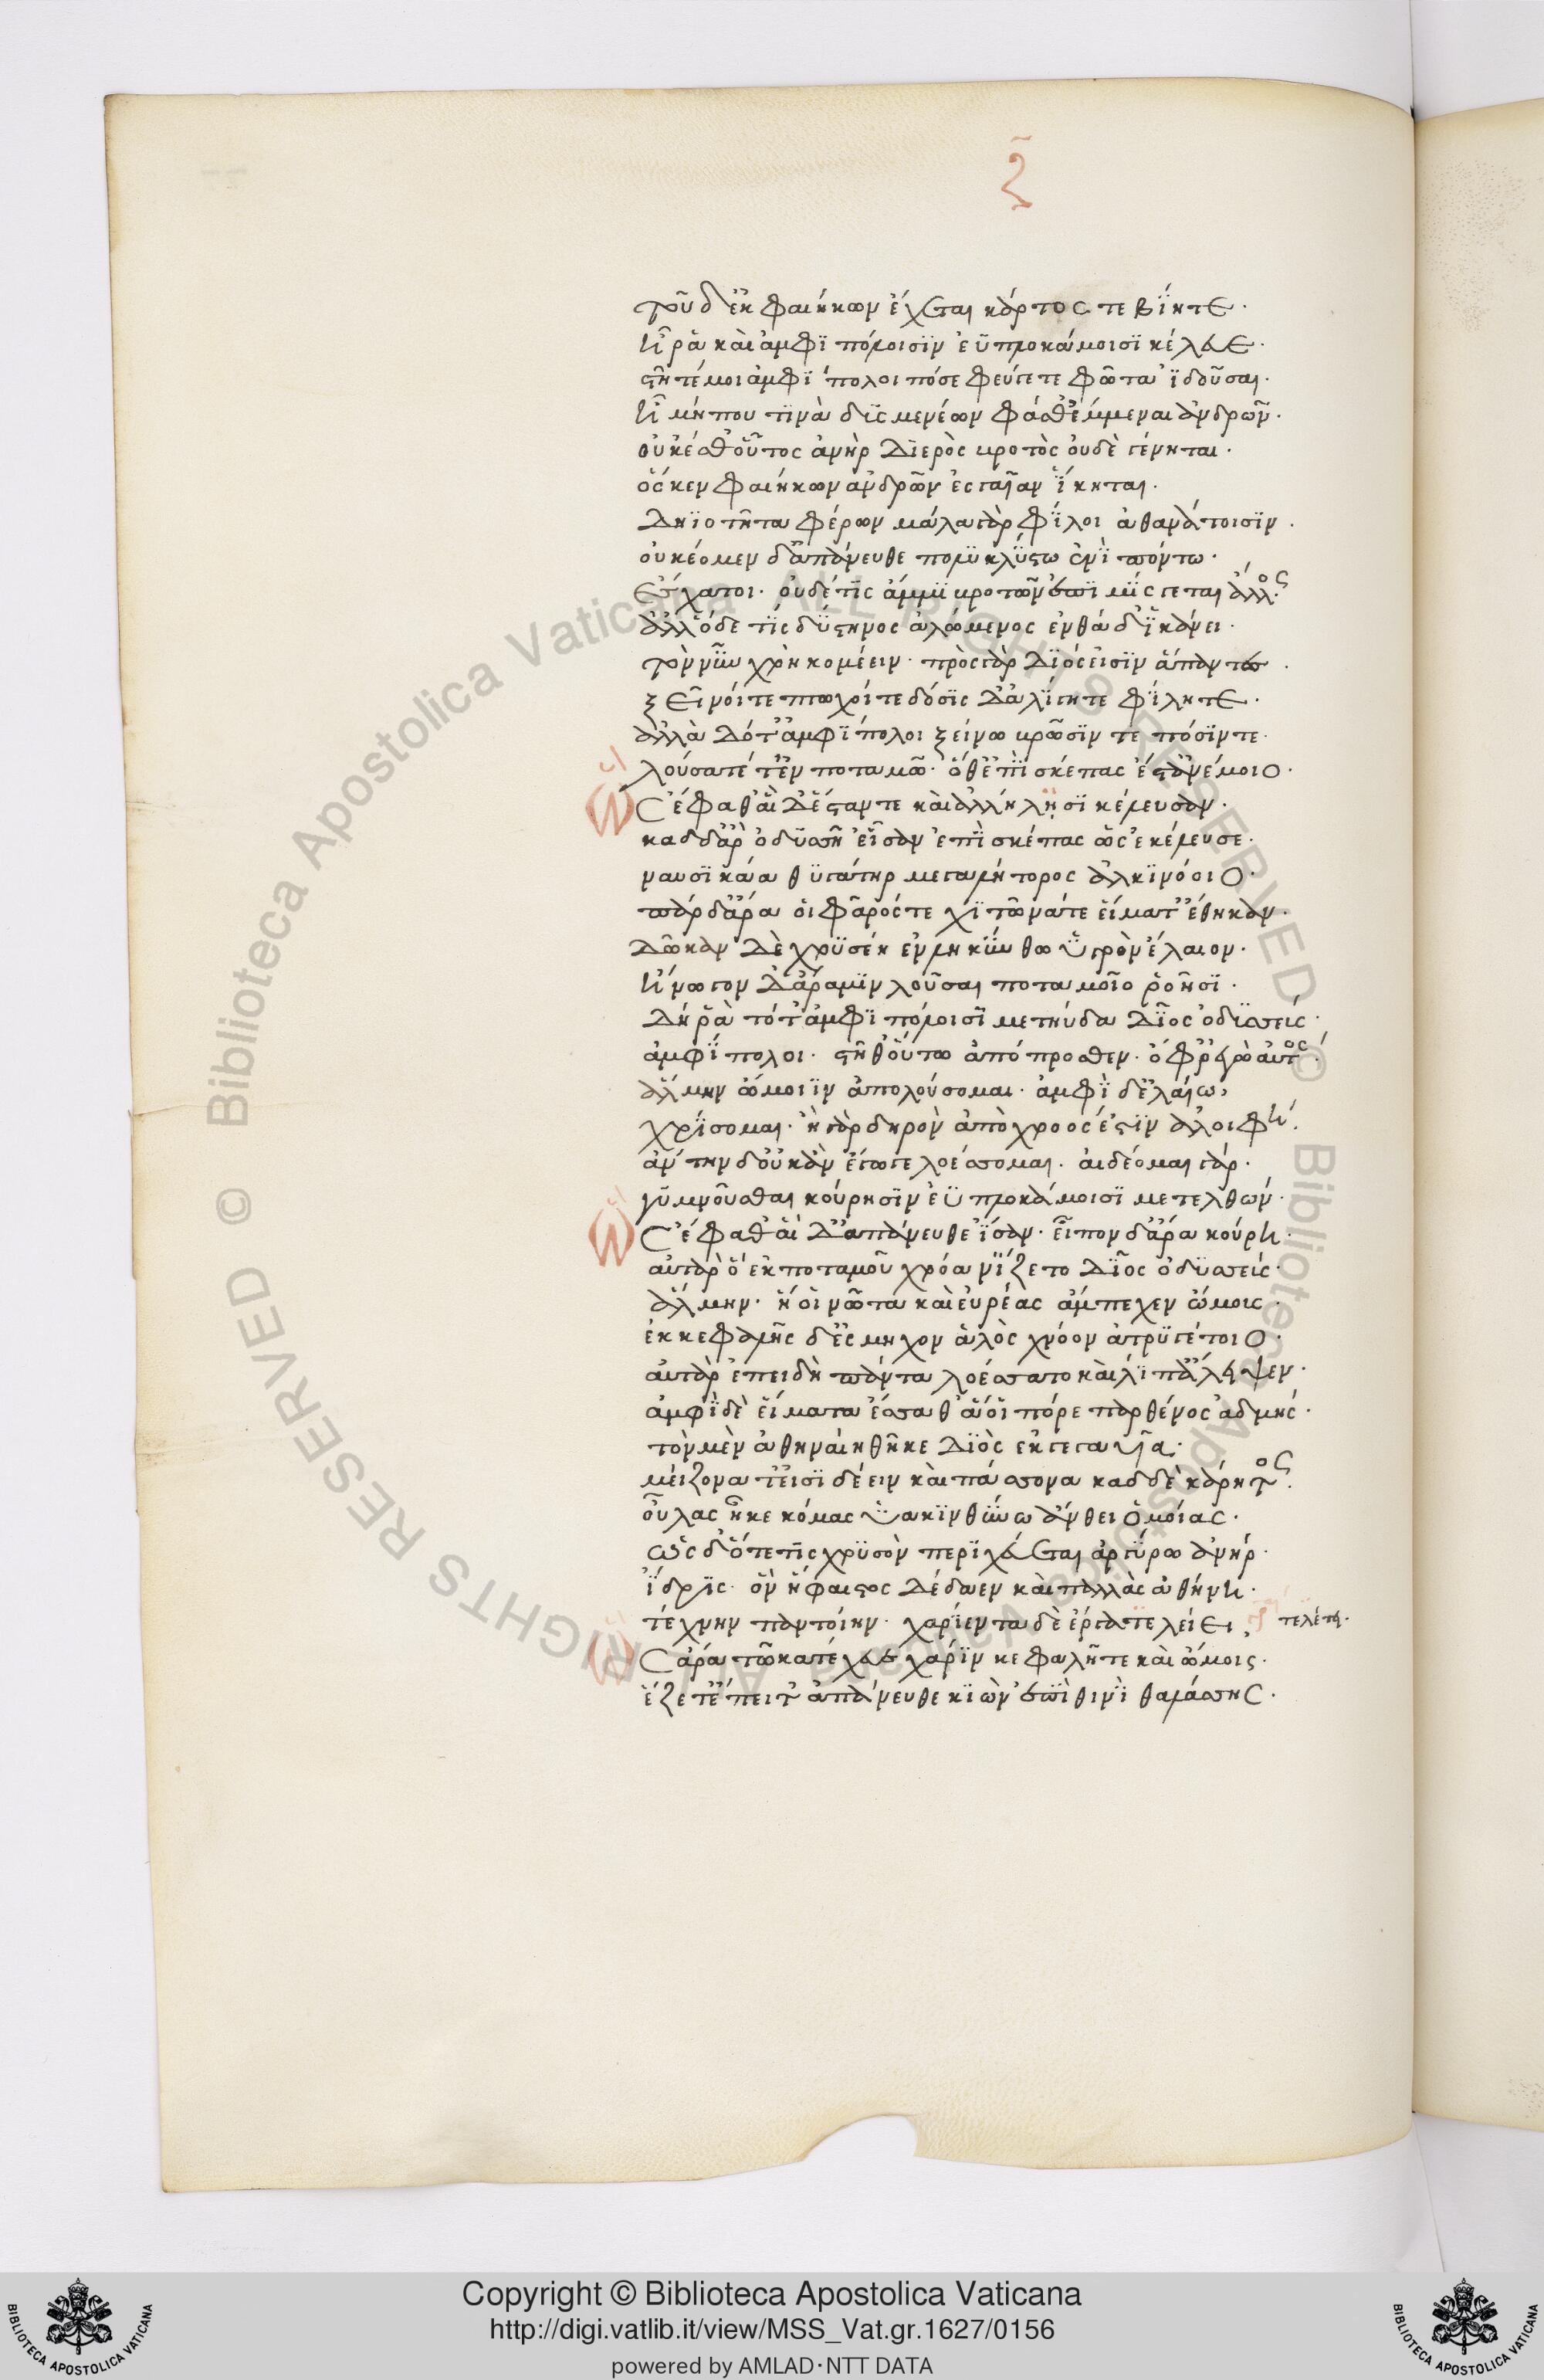 ζ̅
τοῦ δ' ἐκ φαιήκων ἔχεται κάρτος τε βίη τε·
ἦ ῥὰ καὶ ἀμφιπόλοισϊν ἐϋπλοκάμοισϊ κέλευε·
στῆτέ μοι ἀμφίπολοι πόσε φεύγετε φῶτα ἰδοῦσαι·
ἦ μή που τϊνὰ δϋσμενέων φάσθ' ἔμμεναι ἀνδρῶν·
οὐκ ἔσθ' οὗτος ἀνὴρ διερὸς βροτὸς οὐδὲ γένηται·
ὅς κεν φαιήκων ἀνδρῶν ἐς γαῖαν ἵκηται·
δηϊοτῆτα φέρων μάλα γὰρ φίλοι ἀθανάτοισϊν·
οὐκέομεν δ' ἀπάνευθε πολϋκλύστω ἐνὶ πόντω·
ἔσχατοι· οὐδέ τις ἄμμϊ βροτῶν ἐπιμίσγεται ἄλλος·
ἀλλ' ὅδε τίς δύστηνος ἀλώμενος ἐνθάδ' ἱκάνει·
τὸν νῦν χρὴ κομέειν· πρὸς γὰρ διός εἰσϊν ἅπαντες·
ξεῖνοί τε πτωχοί τε δόσϊς δ' ὀλίγη τε φίλη τε·
ἀλλὰ δότ' ἀμφίπολοι ξείνω βρῶσίν τε πόσϊν τε·
λούσατέ τ' ἐν ποταμῶ· ὅθ' ἐπὶ σκέπας ἔστ' ἀνέμοιο·
Ὣς ἔφαθ' αἱ δ' ἔσταν τε καὶ ἀλλήλησϊ κέλευσαν·
καδ δ' ἄρ' ὀδϋσσῆ' εἷσαν ἐπὶ σκέπας ὡς ἐκέλευσε·
ναυσϊκάα θϋγάτηρ μεγαλήτορος ἀλκϊνόοιο·
πὰρ δ' ἄρα οἱ φᾶρός τε χϊτῶνά τε εἵματ' ἔθηκαν·
δῶκαν δὲ χρϋσέη ἐν ληκύθω ὑγρὸν ἔλαιον·
ἤνωγον δ' ἄρα μϊν λοῦσαι ποταμοῖο ῥοῆσϊ·
δή ῥα τότ' ἀμφιπόλοισϊ μετηύδα δῖος ὀδϋσσεύς·
ἀμφίπολοι· στῆθ' οὕτω ἀπόπροσθεν· ὄφρ' ἐγὼ αὐτός·
ἅλμην ὤμοιϊν ἀπολούσομαι· ἀμφὶ δ' ἐλαίω
χρίσομαι· ἦ γὰρ δηρὸν ἀπὸ χροός ἐστϊν ἀλοιφή·
ἄντην δ' οὐκ ἂν ἔγωγε λοέσσομαι· αἰδέομαι γάρ·
γυμνοῦσθαι κούρησϊν ἐϋπλοκάμοισϊ μετελθών·
Ὣς ἔφαθ' αἱ δ' ἀπάνευθε ἴσαν· εἶπον δ' ἄρα κούρη·
αὐτὰρ ὁ ἐκ ποταμοῦ χρόα νίζετο δῖος ὀδϋσσεύς·
ἅλμην· ἥ οἱ νῶτα καὶ εὐρέας ἄμπεχεν ὤμους·
ἐκ κεφαλῆς δ' ἔσμηχον ἁλὸς χνόον ἀτρϋγέτοιο·
αὐτὰρ ἐπειδὴ πάντα λοέσσατο καὶ λίπ' ἄλειψεν·
ἀμφὶ δὲ εἵματα ἕσσαθ' ἅ οἱ πόρε παρθένος ἀδμής·
τὸν μὲν ἀθηναίη θῆκε διὸς ἐκγεγαυῖα·
μείζονα τ' εἰσϊδέειν καὶ πάσσονα καδ δὲ κάρητος·
οὔλας ἧκε κόμας ὑακϊνθίνω ἄνθει ὁμοίας·
ὡς δ' ὅτε τϊς χρϋσὸν περϊχεύεται ἀργύρω ἀνήρ·
ἴδρϊς· ὃν ἥφαιστος δέδαεν καὶ παλλὰς ἀθήνη·
τέχνην παντοίην· χαρίεντα δὲ ἔργα τελείει· τελέει·
Ὣς ἄρα τῶ κατέχευε χάρϊν κεφαλῆ τε καὶ ὤμοις·
ἕζετ' ἔπειτ' ἀπάνευθε κϊὼν ἐπὶ θινὶ θαλάσσης·
Copyright © Biblioteca Apostolica Vaticana
http://digi.vatlib.it/view/MSS_Vat.gr.1627/0156
powered by AMLAD·NTT DATA
BIBLIOTECA APOSTOLICA VATICANA
BIBLIOTECA APOSTOLICA VATICANA
© Biblioteca Apostolica Vaticana ALL RIGHTS RESERVED © Biblioteca Apostolica Vaticana ALL RIGHTS RESERVED